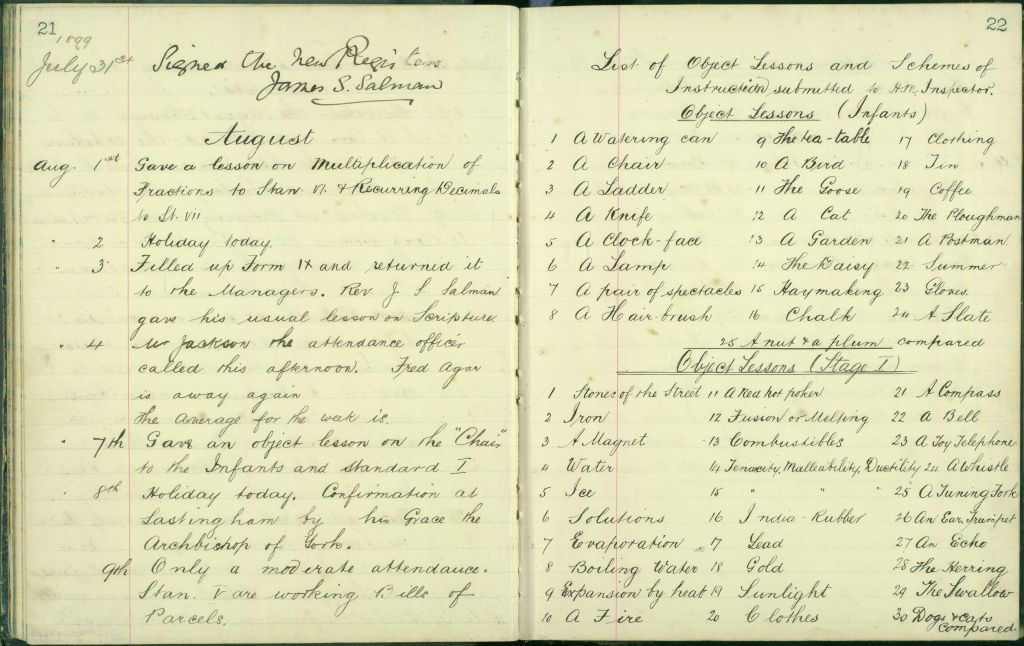 21
1899
July 31st Signed the new Registers
James S. Salman
August
Aug. 1st Gave a lesson on Multiplication of
Fractions to Stan. VI. & Recurring Decimals
to St. VII
" 2 Holiday today.
" 3 Filled up Form IX and returned it
to the Managers. Rev. J S Salman
gave his usual lesson on Scripture.
" 4 Mr Jackson the attendance officer
called this afternoon. Fred Agar
is away again
The average for the week is.
" 7th Gave an object lesson on the "Chair"
to the Infants and Standard I
" 8th Holiday today. Confirmation at
Lastingham by his Grace the
Archbishop of York.
9th Only a moderate attendance.
Stan. V are working Bills of
Parcels.
22
List of Object Lessons and Schemes of
Instruction submitted to H.M. Inspector.
Object Lessons (Infants)
1 A Watering can 9 The tea-table 17 Clothing
2 A Chair 10 A Bird 18 Tin
3 A Ladder 11 The Goose 19 Coffee
4 A Knife 12 A Cat 20 The Ploughman
5 A Clock-face 13 A Garden 21 A Postman
6 A Lamp 14 The Daisy 22 Summer
7 A pair of spectacles 15 Haymaking 23 Gloves
8 A Hair-brush 16 Chalk 24 A Slate
25 A nut & a plum compared
Object Lessons (Stage I)
1 Stones of the Street 11 A Red hot poker 21 A Compass
2 Iron 12 Fusion or Melting 22 A Bell
3 A Magnet 13 Combustibles 23 A Toy Telephone
4 Water 14 Tenacity, Malleability, Ductility 24 A Whistle
5 Ice 15 " " " 25 A Tuning Fork
6 Solutions 16 India-Rubber 26 An Ear Trumpet
7 Evaporation 17 Lead 27 An Echo
8 Boiling Water 18 Gold 28 The Herring
9 Expansion by heat 19 Sunlight 29 The Swallow
10 A Fire 20 Clothes 30 Dogs & cats
compared.